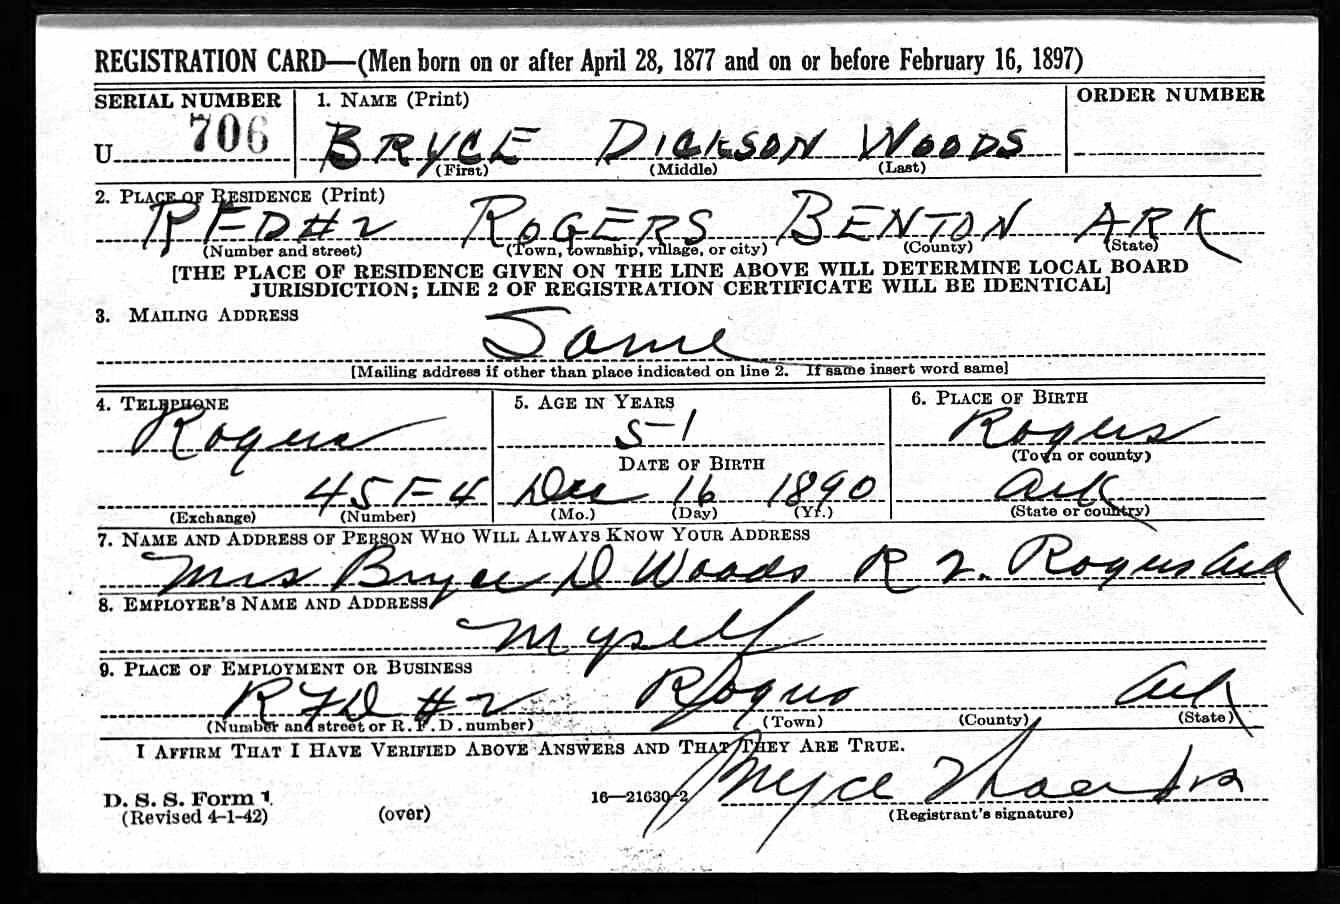 REGISTRATION CARD—(Men born on or after April 28, 1877 and on or before February 16, 1897)
SERIAL NUMBER 1. NAME (Print) ORDER NUMBER
U 706 BRYCE DICKSON WOODS
(First) (Middle) (Last)
2. PLACE OF RESIDENCE (Print)
RFD#2 ROGERS BENTON ARK
(Number and street) (Town, township, village, or city) (County) (State)
[THE PLACE OF RESIDENCE GIVEN ON THE LINE ABOVE WILL DETERMINE LOCAL BOARD
JURISDICTION; LINE 2 OF REGISTRATION CERTIFICATE WILL BE IDENTICAL]
3. MAILING ADDRESS
Same
[Mailing address if other than place indicated on line 2. If same insert word same]
4. TELEPHONE 5. AGE IN YEARS 6. PLACE OF BIRTH
Rogers 51 Rogers
DATE OF BIRTH (Town or county)
45F4 Dec 16 1890 Ark
(Exchange) (Number) (Mo.) (Day) (Yr.) (State or country)
7. NAME AND ADDRESS OF PERSON WHO WILL ALWAYS KNOW YOUR ADDRESS
Mrs Bryce D Woods R 2. Rogers Ark
8. EMPLOYER'S NAME AND ADDRESS
Myself
9. PLACE OF EMPLOYMENT OR BUSINESS
RFD #2 Rogers Ark
(Number and street or R. F. D. number) (Town) (County) (State)
I AFFIRM THAT I HAVE VERIFIED ABOVE ANSWERS AND THAT THEY ARE TRUE.
D. S. S. Form 1 16—21630-2 Bryce
(Revised 4-1-42) (over) (Registrant's signature)